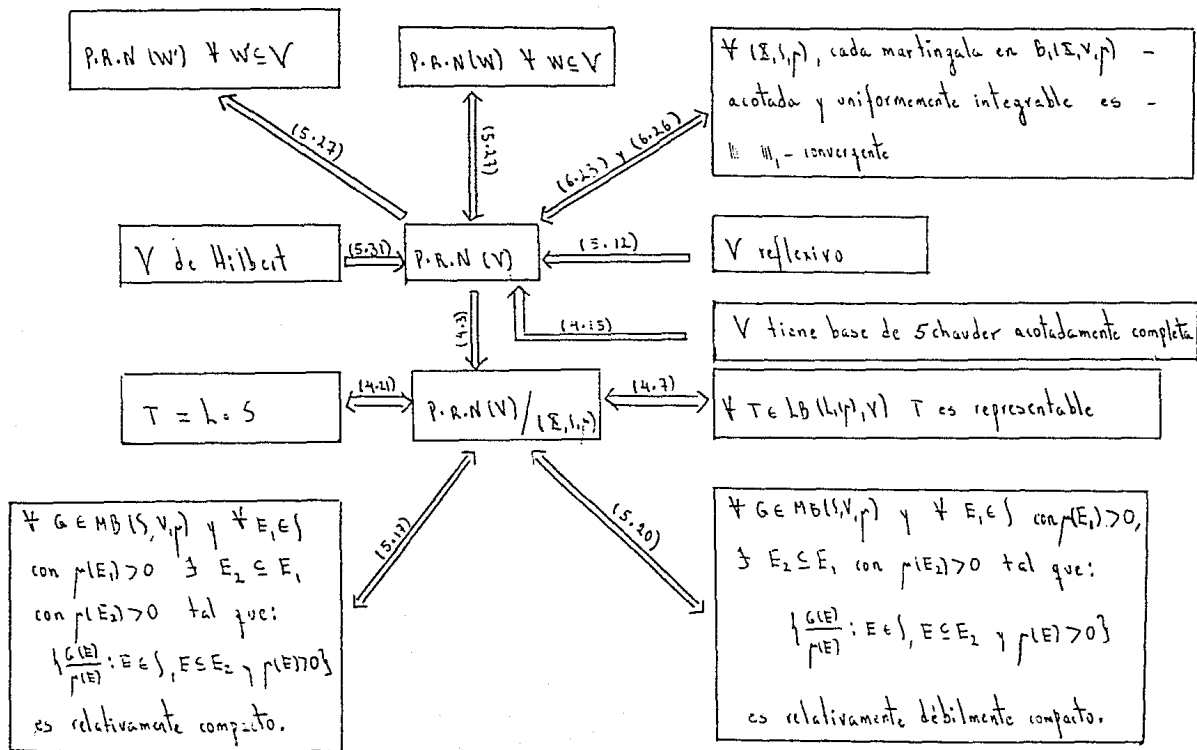 P.R.N (W') ∀ W ⊆ V
P.R.N (W) ∀ W ⊆ V
∀ (Σ, S, μ), cada martingala en B₁(Σ, V, μ) -
acotada y uniformemente integrable es -
||| |||₁ - convergente
(5.27)
(5.27)
(6.23) y (6.26)
V de Hilbert
(5.31)
P.R.N (V)
(5.12)
V reflexivo
(4.3)
(4.15)
V tiene base de Schauder acotadamente completa
T = L∘S
(4.21)
P.R.N (V) / (Σ, S, μ)
(4.7)
∀ T ∈ LB (L₁(μ), V) T es representable
(5.17)
(5.20)
∀ G ∈ MB (S, V, μ) y ∀ E₁ ∈ S
con μ(E₁) > 0 ∃ E₂ ⊆ E₁
con μ(E₂) > 0 tal que:
{ G(E)/μ(E) : E ∈ S, E ⊆ E₂ y μ(E) > 0 }
es relativamente compacto.
∀ G ∈ MB (S, V, μ) y ∀ E₁ ∈ S con μ(E₁) > 0,
∃ E₂ ⊆ E₁ con μ(E₂) > 0 tal que:
{ G(E)/μ(E) : E ∈ S, E ⊆ E₂ y μ(E) > 0 }
es relativamente débilmente compacto.